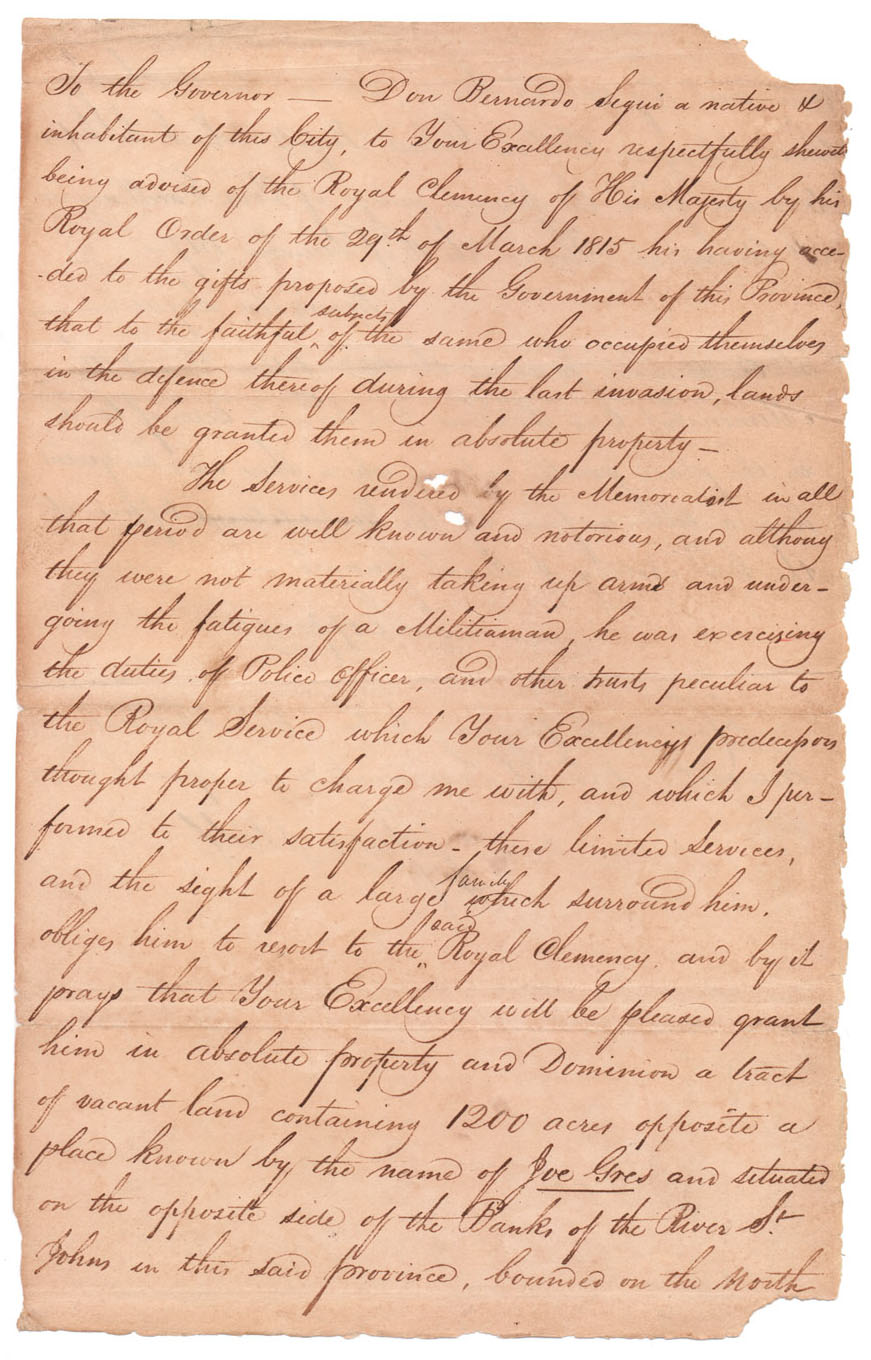 To the Governor — Don Bernardo Segui a native &
inhabitant of this City, to Your Excellency respectfully sheweth
being advised of the Royal Clemency of His Majesty by his
Royal Order of the 29th of March 1815 his having acce-
-ded to the gifts proposed by the Government of this Province,
that to the faithful subjects of the same who occupied themselves
in the defence thereof during the last invasion, lands
should be granted them in absolute property —
The Services rendered by the Memorialist in all
that period are well known and notorious, and althoug
they were not materially taking up arms and under-
going the fatigues of a Militiaman, he was exercising
the duties of Police Officer, and other trusts peculiar to
the Royal Service which Your Excellencys predecessors
thought proper to charge me with, and which I per-
formed to their satisfaction - these limited Services,
and the sight of a large family which surround him,
obliges him to resort to the said Royal Clemency and by it
prays that Your Excellency will be pleased grant
him in absolute property and Dominion a tract
of vacant land containing 1200 acres opposite a
place known by the name of Joe Gres and situated
on the opposite side of the Banks of the River St.
Johns in this said province, bounded on the North